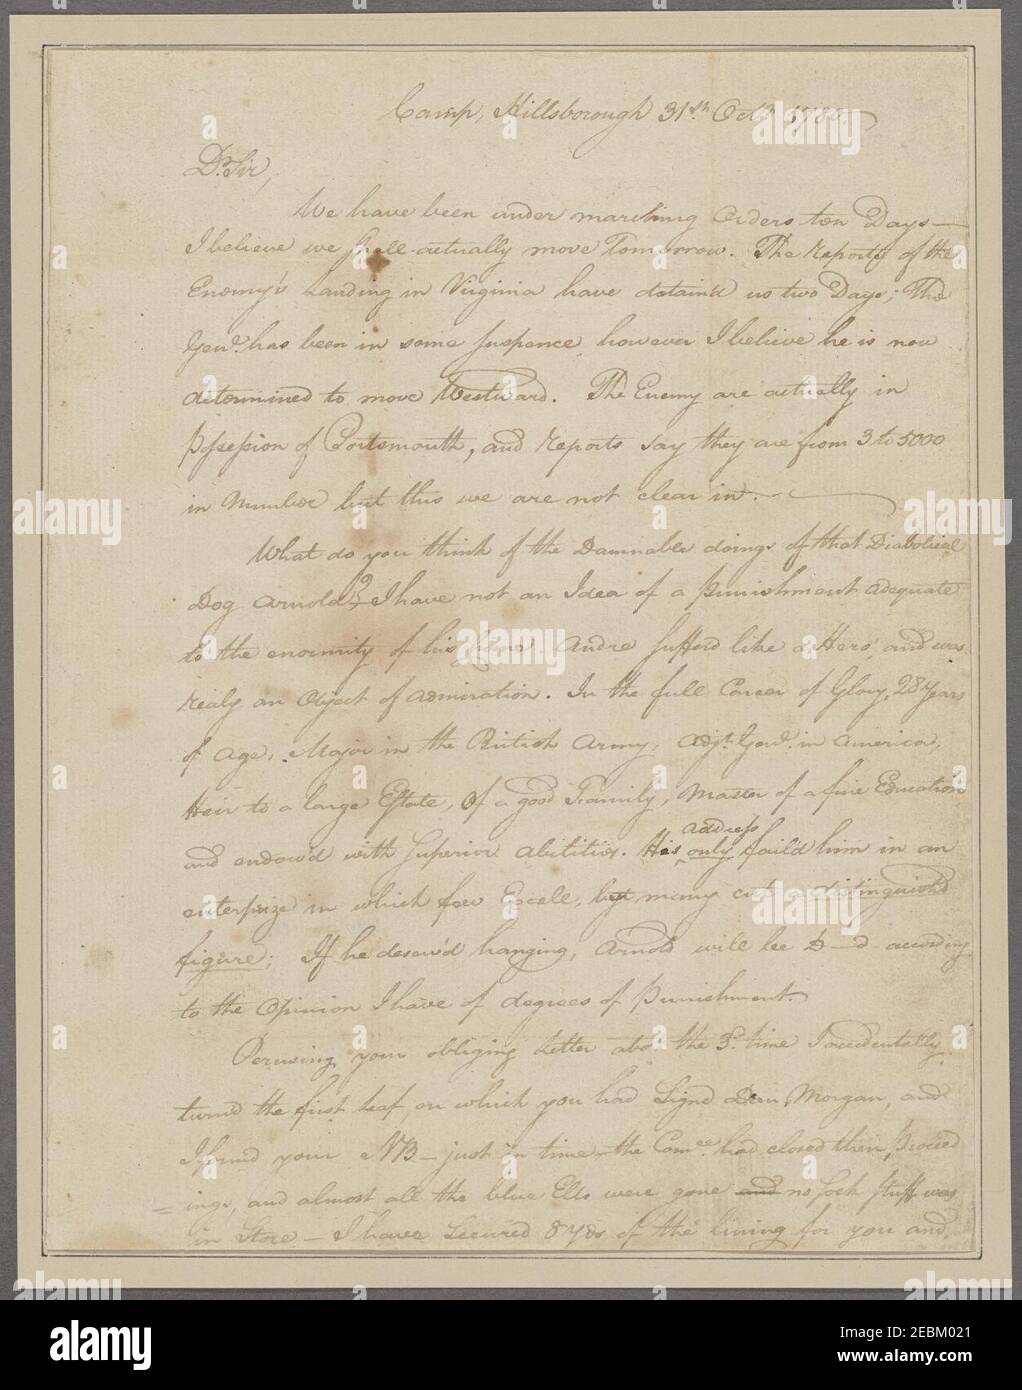 Camp, Hillsborough 31st. Octr. 1780
Dr. Sir,
We have been under marching Orders ten Days —
I believe we shall actually move Tomorrow. The Reports of the
Enemy's Landing in Virginia have detain'd us two Days; The
Genl. has been in some suspence, however I believe he is now
determined to move Westward. The Enemy are actually in
Possession of Portsmouth, and Reports say they are from 3 to 5000
in Number but this we are not clear in. —
What do you think of the Damnable doings of that Diabolical
Dog Arnold? I have not an Idea of a Punishment adequate
to the enormity of his Crime. Andre sufferd like a Hero, and was
realy an Object of admiration. In the full Career of Glory, 28 Years
of Age, Major in the British Army, Adjt. Genl. in America,
Heir to a large Estate, Of a good Family, Master of a fine Education
and endow'd with Superior abilities. His
address
only faild him in an
enterprize in which few Excell, but many cut a distinguish'd
figure; If he deserv'd hanging, Arnold will be D—d according
to the Opinion I have of degrees of Punishment.
Perusing your obliging Letter abo. the 3d. time I accidentally
turnd the first leaf on which you had Signd Dan Morgan, and
I found your NB — just in time — the Comee. had closed their Proceed
ings, and almost all the blue Ells were gone and no such Stuff was
in Store — I have secured 8 Yds of the lining for you and
alamy
alamy
alamy
alamy
alamy
alamy
alamy
a
a
a
a
a
a
alamy
Image ID: 2EBM021
www.alamy.com